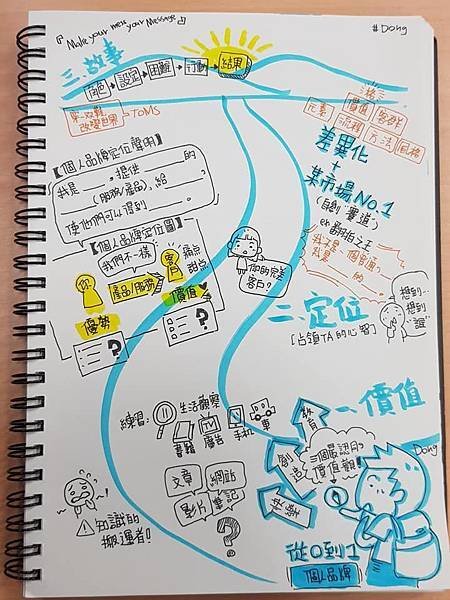 『Make your mess, your Message』
#Dong
三.故事
角色 設定 困難 行動 結果
穿一双鞋
改變世界 →TOMS
價值 客群
元素 流程 方法 風格
差異化
+
某市場NO.1
(自創"賽道")
ex 翻拍之王
【個人品牌定位聲明】
我是____,提供____的
____(服務/產品),給____,
使他們可以得到____。
【個人品牌定位圖】
我們不一樣
你 產品/服務 客戶 痛点
甜点
優勢 價值
?
?
你的完美
客戶?
我不是一個普通
我是 的
二.定位
[占領TA的心智]
想到…
想到
"誼"
一.價值
練習: 生活觀察
書籍 TV 廣告 手机 車
教育
創造
三個最認同的
價值觀!
文章 網站
影片 筆記
?
知識的
搬運者!
Dong
從0到1
個人品牌